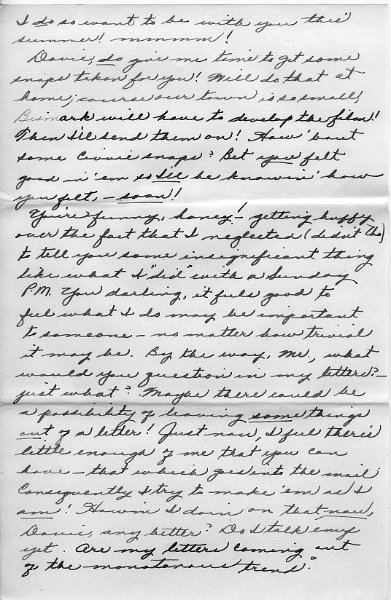 I do so want to be with you this
summer! mmmm!
Davie, do give me time to get some
snaps taken for you! Will do that at
home; course our town is so small,
Bismark will have to develop the films!
Then I'll send them on! How 'bout
some Civvie snaps? Bet you felt
good in 'em so I'll be knowin' how
you felt, – soon!
You're funny, honey – ! getting huffy
over the fact that I neglected (didn't tho)
to tell you some insignificant thing
like what I "did" with a Sunday
P.M. You darling, it feels good to
feel what I do may be important
to someone – no matter how trivial
it may be. By the way, Mr., what
would you question in my letters? –
just what? Maybe there could be
a possibility of leaving some things
out of a letter! Just now, I feel there's
little enough of me that you can
have – that which goes into the mail
Consequently I try to make 'em as I
am! How'm I doin on that now,
Davie, any better? Do I talk easy
yet. Are my letters coming out
of the monotonous trend?